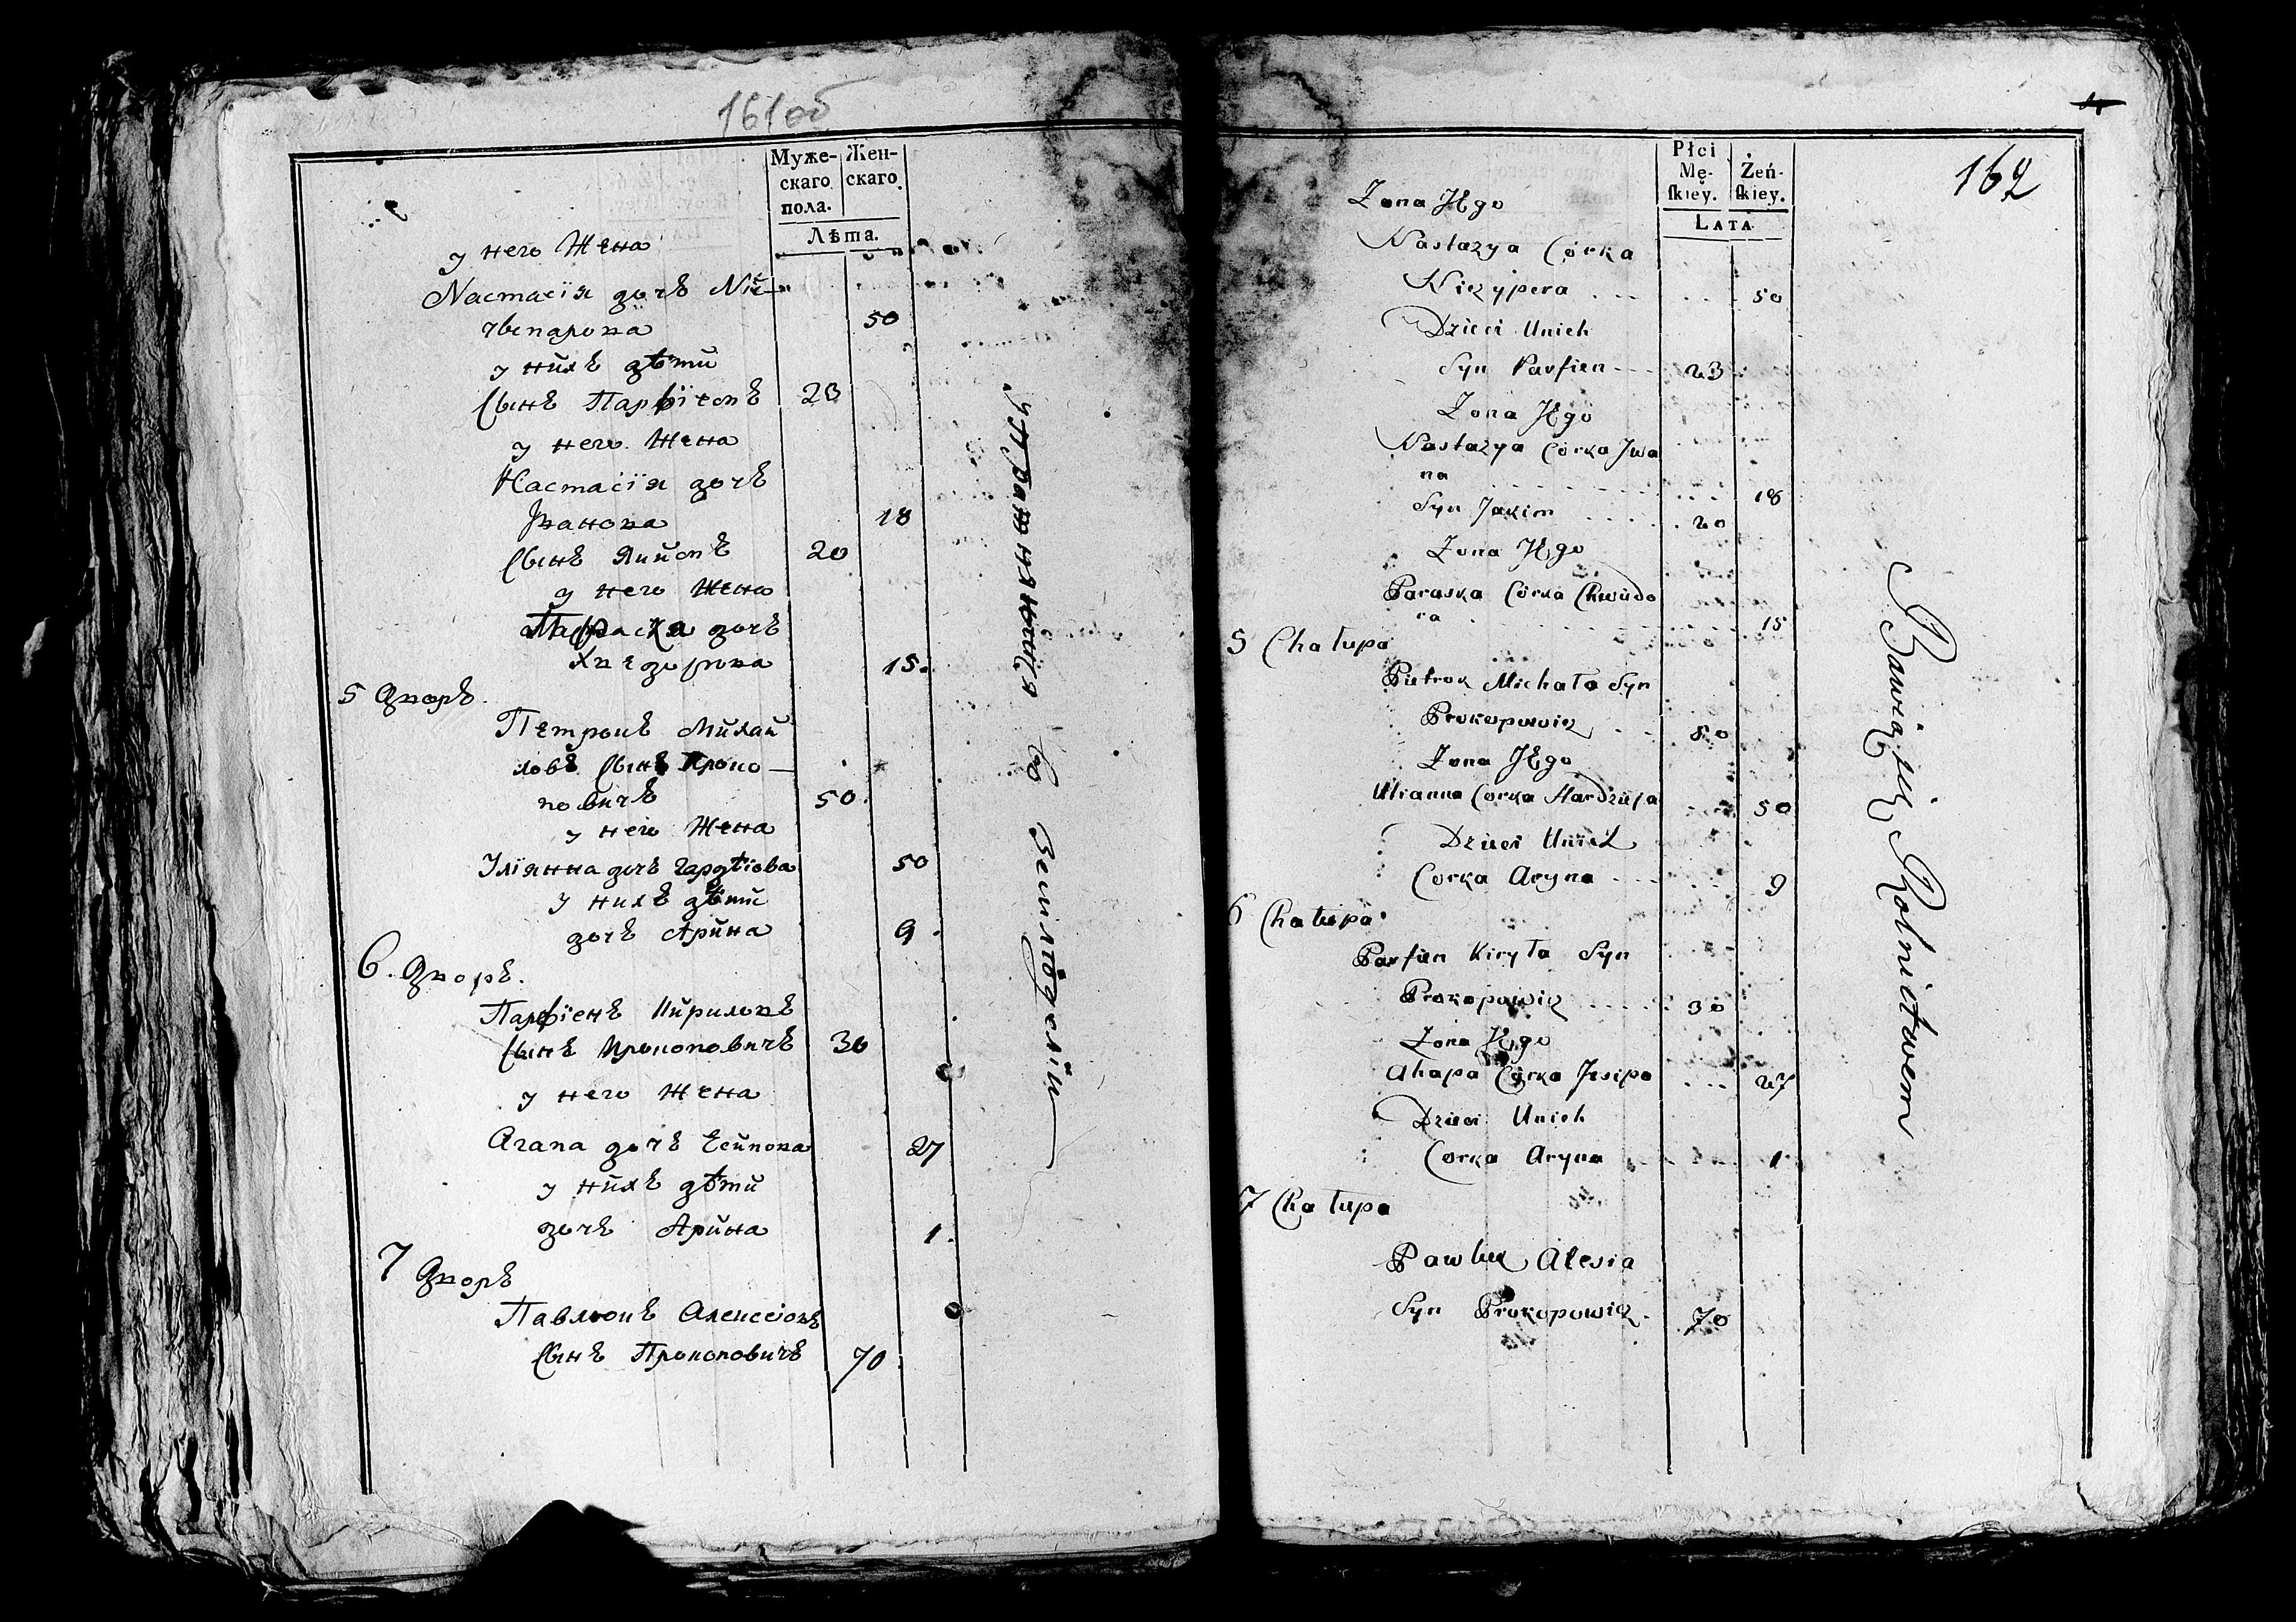 161об
Муже-
скаго
пола.
Жен-
скаго
Лѣта.
у него Жена
Nастасїя дочъ Ни-
чыпарова 50
у нихъ дѣти
Сынъ Парфїеонъ 23
у него Жена
Настасїя дочъ
Jванова 18
Сынъ Якимъ 20
у него Жена
Параска дочъ
Хведорова 15.
5 Дворъ.
Петрокъ Михай
ловъ Сынъ Проко-
повичъ 50.
у него Жена
Улїянна дочъ Гардѣіова 50
у нихъ дѣти
дочъ Арина 9.
6. Дворъ.
Парфїенъ Кириловъ
Сынъ Прокоповичъ 30
у него Жена
Агапа дочъ Есипова 27
у нихъ дѣти
дочъ Арина 1.
7 Дворъ
Павлюкъ Алексеіовъ
Сынъ Прокоповичъ 70
упражняющїйся во земледелїи
162
Płci
Mę-
ſkiey.
Żeń-
ſkiey.
LATA
Zona JEgo
Nastazya Córka
Niczypera 50
Dzieci Unich
Syn Parfien 23
Zona JEgo
Nastazya Córka Jwa
na 18
Syn Jakim 20
Zona JEgo
Paraska Córka Chwiedo
ra 15
5 Chałupa
Pietrok Michała Syn
Prokopowicz 50
Zona JEgo
Ulianna Corka Hardzieja 50
Dzieci Unich
Corka Aryna 9
6 Chałupa
Parfien Kiryła Syn
Prokopowicz 30
Zona JEgo
Ahapa Córka Jesipa 27
Dzieci Unich
Corka Aryna 1
7 Chałupa
Pawluk Alexia
Syn Prokopowicz. 70
Bawią się Rolnictwem